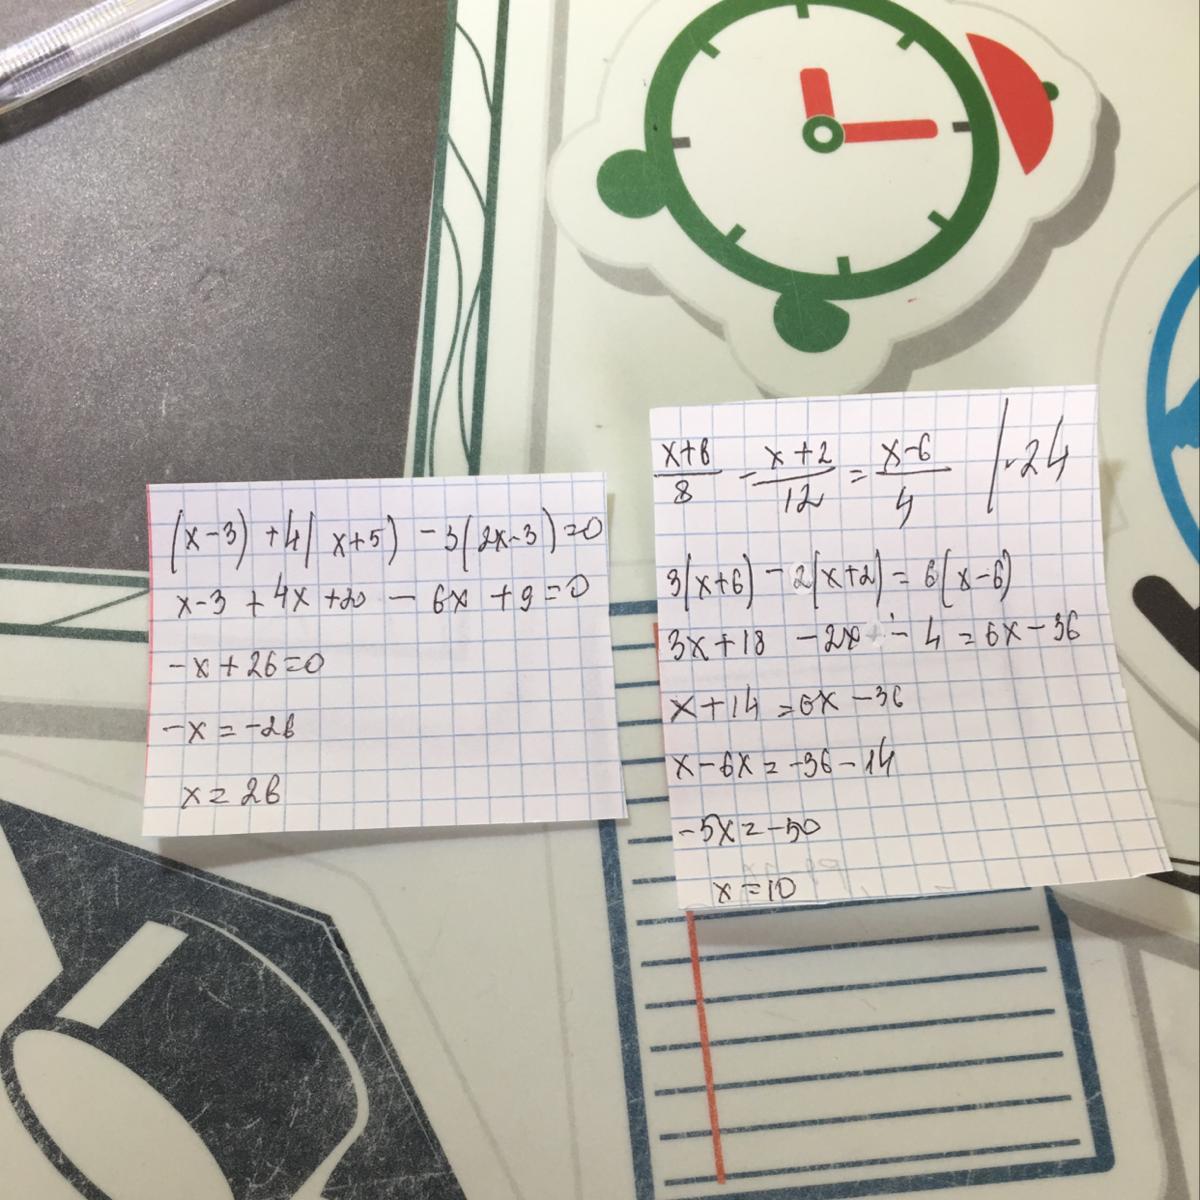 (x-3) +4(x+5) -3(2x-3)=0
x-3 + 4x +20 - 6x +9=0
-x+26=0
-x = -26
x = 26
x+6/8 - x+2/12 = x-6/4 |·24
3(x+6) - 2(x+2) = 6(x-6)
3x+18 -2x - 4 = 6x-36
x+14 = 6x -36
x-6x = -36-14
-5x = -50
x = 10